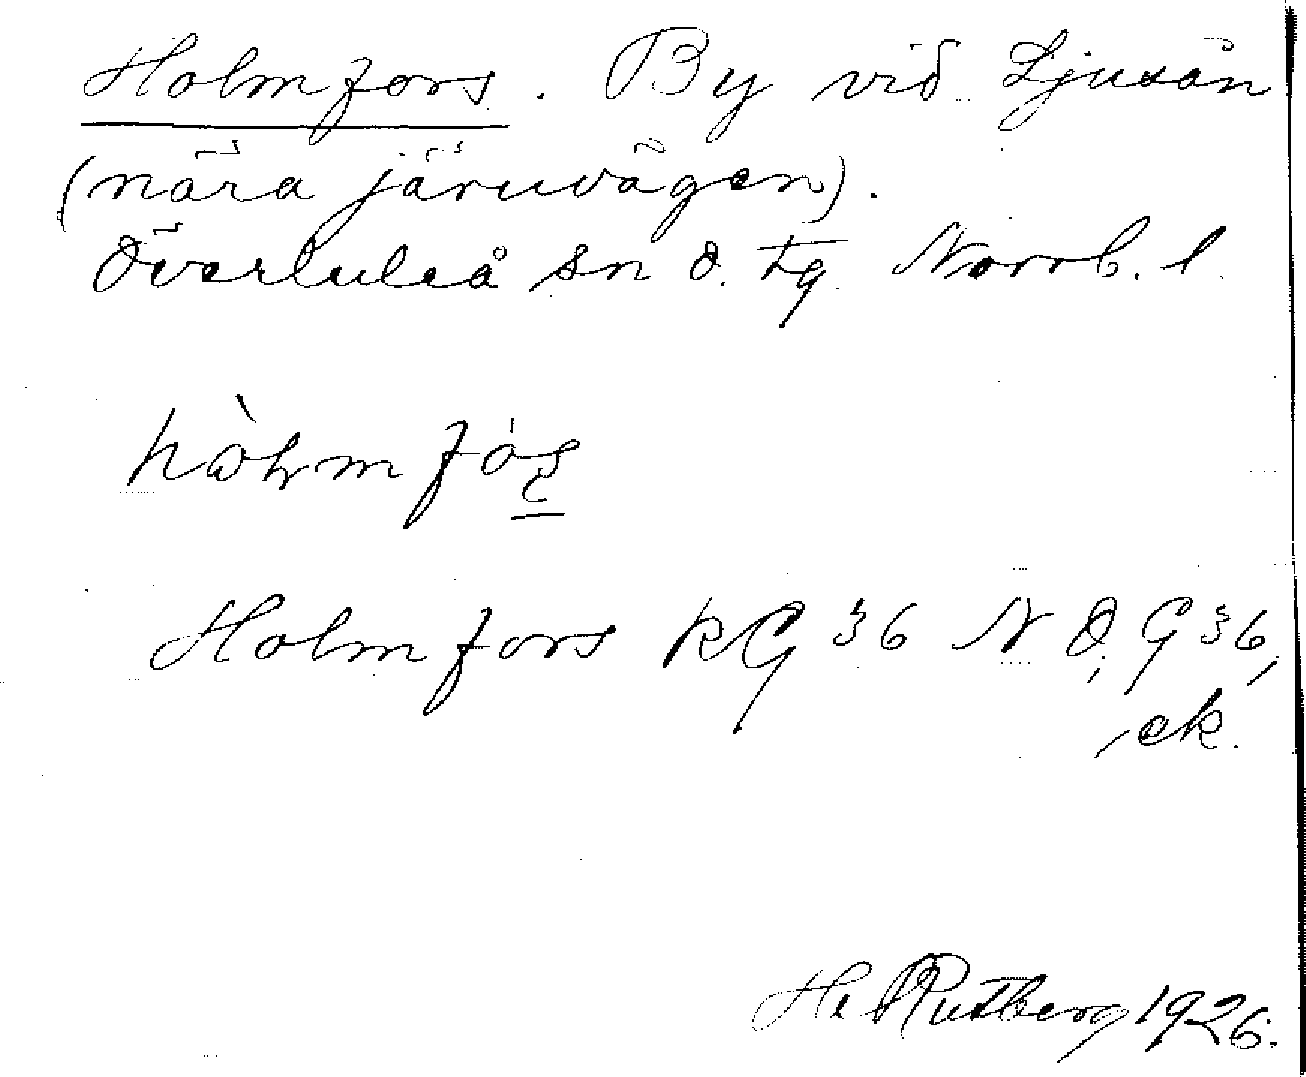 Holmfors. By vid Ljusån
(nära järnvägen).
Överluleå sn Ö. tg Norrb. l.
Holmfors RG 36 N Ö, G 36,
ek.
H. Rutberg 1926.